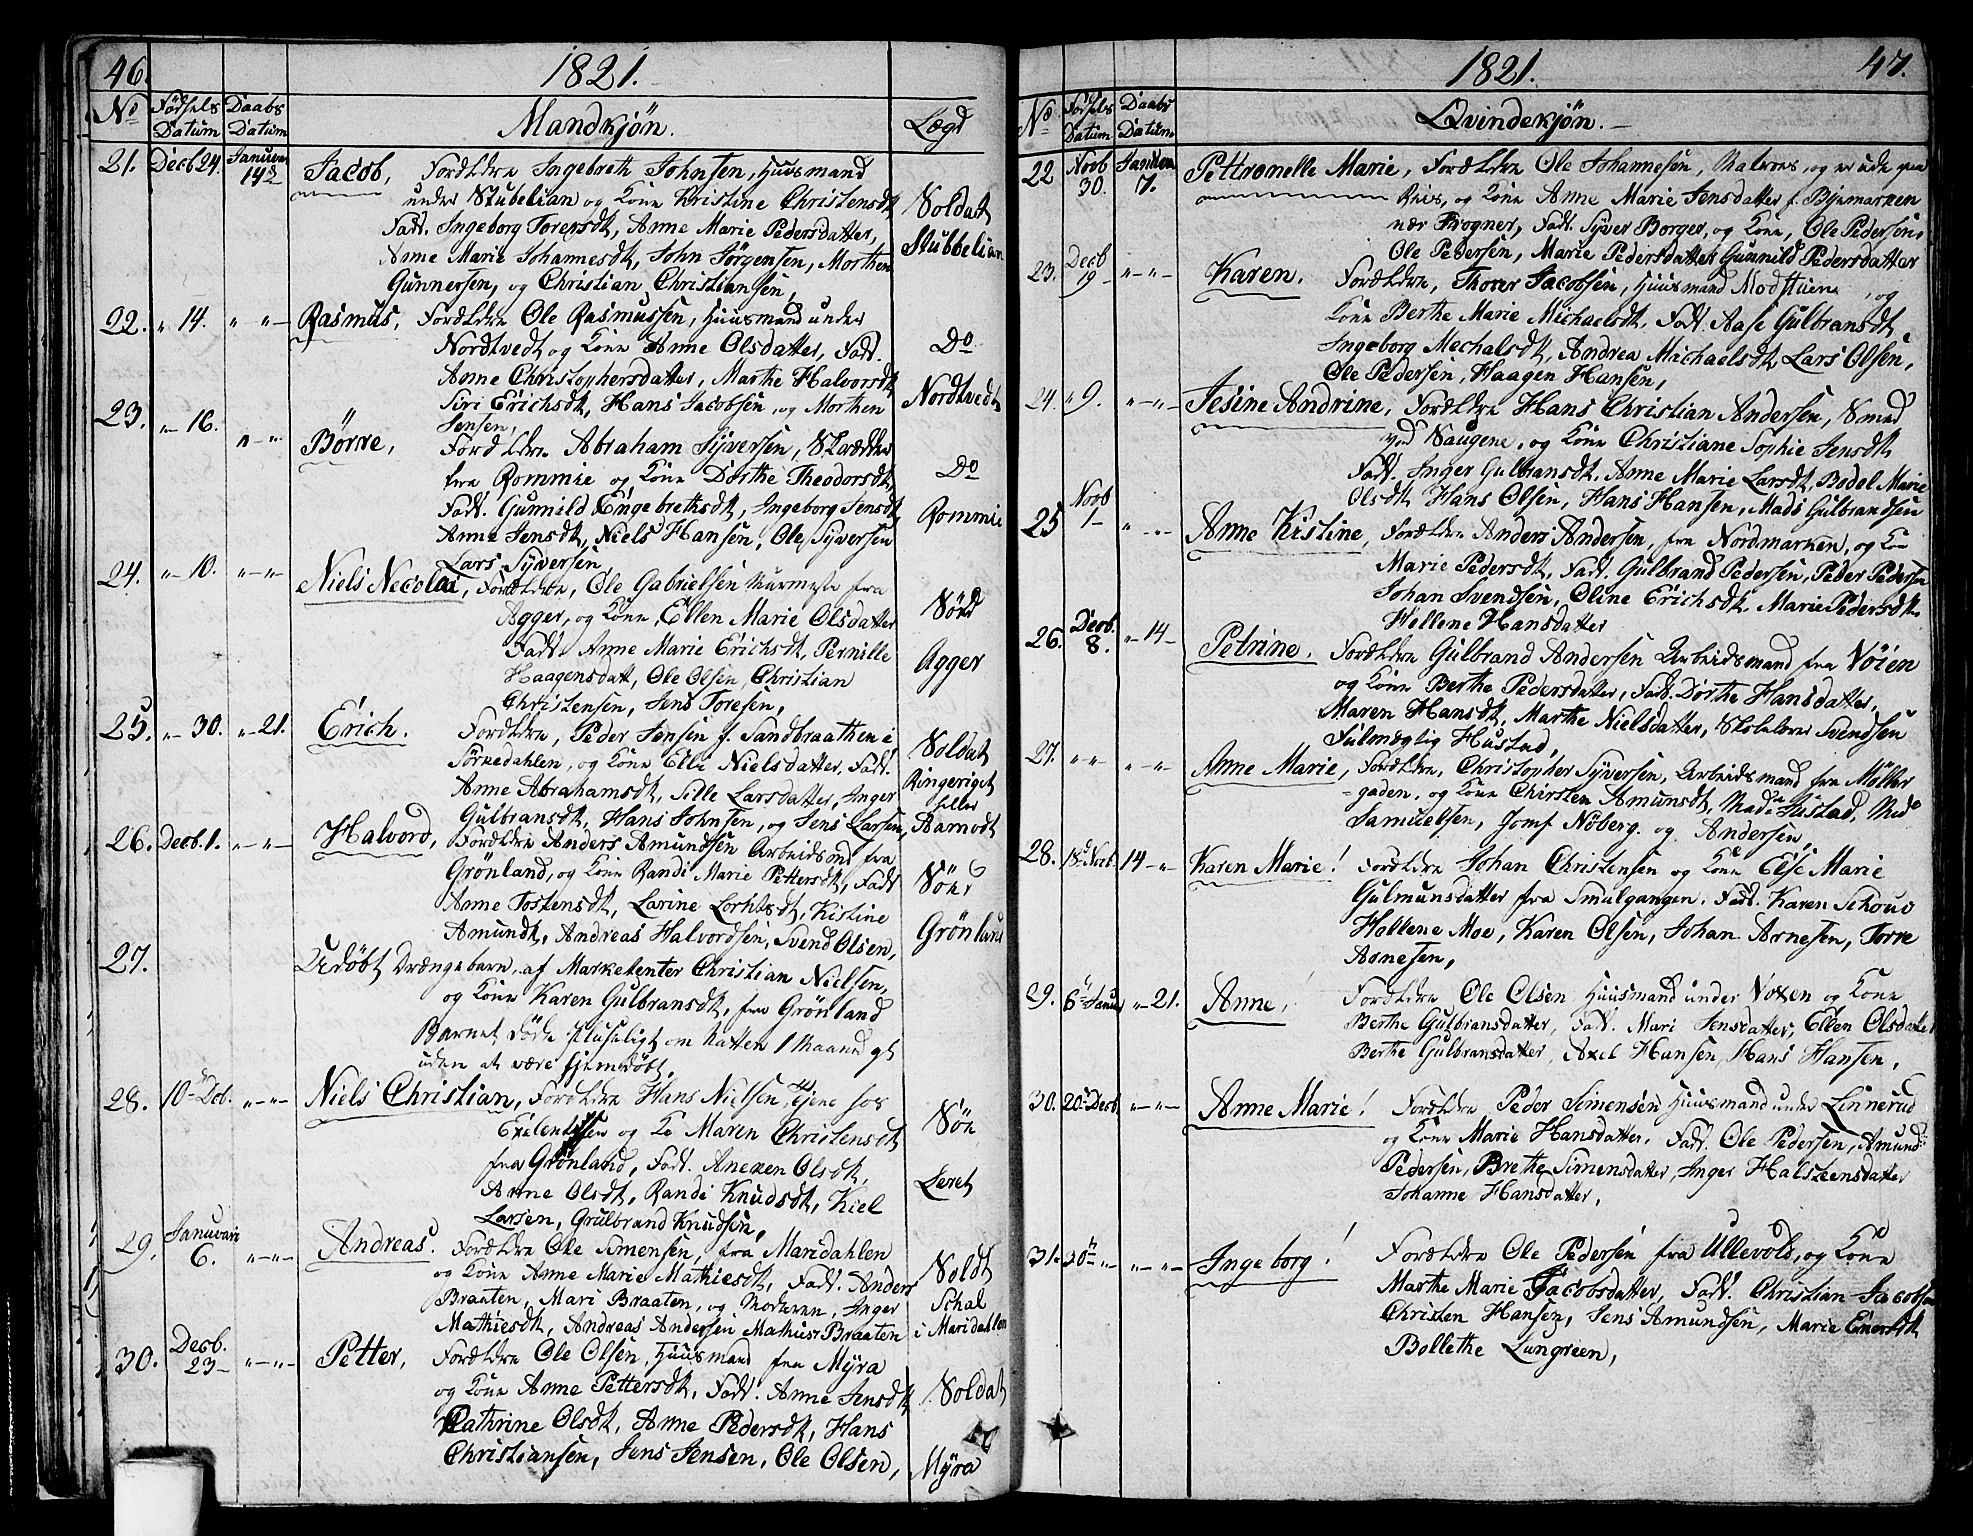 46.
1821.
No Fødsels Datum Daabs Datum Mandkjøn. Lægd
21. Decb 24. Januar 14de Jacob, Forældre Ingebreth Johnsen, Huusmand
under Stubelian og Kone Kristine Christensdt Soldat
Fad. Ingeborg Toresdt, Anne Marie Pedersdatter,
Anne Marie Johannesdt, John Jörgensen, Morthen Stubbelian
Gunnersen, og Christian Christiansen,
22. " 14. " "– Rasmus, Forældre Ole Rasmussen, Huusmand under
Nordtvedt og Kone Anne Olsdatter, Fad. Do
Anne Christophersdatter, Marthe Halvorsdt Nordtvedt
Siri Erichsdt, Hans Jacobsen, og Morthen
Jensen,
23. "– 16. "–" Börre, Forældre Abraham Syversen, Skrædder
fra Rommie og Kone Dorthe Theodorsdt, Do
Fad. Gunnild Engebrethsdt, Ingeborg Jensdt, Rommie
Anne Jensdt, Niels Hansen, Ole Syversen
Lars Syversen
24. "– 10. "–"– Niels Necolai, Forældre, Ole Gabrielsen Murmester fra
Agger, og Kone, Ellen Marie Olsdatter
Fad. Anne Marie Erichsdt, Pernille Agger
Haagensdatt, Ole Olsen, Christian
Christensen, Jens Toresen,
25. "– 30. "–21. Erich. Forældre, Peder Jensen f. Sandbraathen i
Sörkedahlen, og Kone Elli Nielsdatter, Fad. Soldat
Anne Abrahamsdt, Sille Larsdatter, Inger Ringeriget
Gulbransdt, Hans Johnsen, og Jens Larsen, eller Aamodt
26. Decb. 1. "–"– Halvord, Forældre Anders Amundsen Arbeidsmd fra
Grönland, og Kone Randi Marie Pettersdt, Fad.
Anne Tostensdt, Larine Kistine
Amundt, Andreas Halvordsen, Svend Olsen, Grönland
27. Udöbt Drængebarn, af Marketenter Christian Nielsen,
og Kone Karen Gulbransdt, fra Grönland
Barnet döde Pluseligt om Natten 1 Maaned gt
uden at være hjemdöbt.
28. 10 Deb. "–"– Niels Christian, Forældre Hans Nielsen, tjene hos
og Ko Maren Christensdt Sön
fra Grönland, Fad. Anexen Olsdt,
Anne Olsdt, Randi Knudsdt, Kiel Leret
Larsen, Grulbrand Knudsen,
29. Januari 6. "–"– Andreas. Forældre Ole Simensen, fra Maridahlen
og Kone Anne Marie Mathiesdt, Fad. Anders Soldt
Braaten, Mari Braaten, og Moderen, Inger
Mathiesdt, Andreas Andersen Mathias Braaten i Maridahlen
30. Decb. 23– "–"– Petter, Forældre Ole Olsen, Huusmand fra Myra
og Kone Anne Pettersdt, Fad. Anne Jensdt, Soldat
Cathrine Olsdt, Anne Pedersdt, Hans
Christiansen, Jens Jensen, Ole Olsen, Myra
1821.
47.
No Fødsels Datum Daabs Datum Qvindekjön.–
22 Novb 30. Januar 7. Pettronelle Marie, Forældre Ole Johannesen, Matros, og er ude paa
Reis, og Kone Anne Marie Jensdatter f. Bymarken
nær Frogner, Fad. Syver Borger, og Kone, Ole Pedersen,
Ole Pedersen, Marie Pedersdatter Gunnild Pedersdatter
23. Decb 19 "–"– Karen. Forældre, Thorer Jacobsen, Huusmand Modstuen , og
Kone Berthe Marie Michaelsdt, Fad. Aase Gulbransdt,
Ingeborg Mechalsdt, Andrea Michaelsdt, Lars Olsen,
Ole Pedersen, Haagen Hansen,
24. " 9. "–"– Jesine Andrine, Forældre Hans Christian Andersen, Smed
ved Saugene, og Kone Christiane Sophie Jensdt
Fad. Inger Gulbransdt, Anne Marie Larsdt, Bodel Marie
Olsdt, Hans Olsen, Hans Hansen, Mads Gulbrandsen
25 Novb 1– " "– Anne Kistine, Forældre Anders Andersen, fra Nordmarken, og Ko
Marie Pedersdt, Fad. Gulbrand Pedersen, Peder Pedersen
Johan Svendsen, Oline Erichsdt, Marie Pedersdt,
Hellene Hansdatter
26. Decb. 8. "–14– Petrine. Forældre Gulbrand Andersen Arbeidsmand fra Vöien
og Kone Berthe Pedersdatter, Fad. Dorthe Hansdatter,
Maren Hansdt, Marthe Nielsdatter, Skolelærer Svendsen
Fulmægtig Hustad,
27. " " "–"– Anne Marie, Forældre, Christopher Syversen, Arbeidsmand fra Möller
gaden, og Kone Chirsten Amunsdt, Mad Hustad, Md
Samuelsen, Jomf Nöberg og Andersen,
28. 18 Novb. 14–" Karen Marie! Forældre Johan Christensen og Kone Else Marie
Gulmunsdatter fra Smulgangen. Fad. Karen Schouv
Hollene Moe, Karen Olsen, Johan Arnesen, Torre
Arnesen,
29. 6 Januar "–21. Anne! Forældre Ole Olsen Huusmand under Voxen og Kone
Berthe Gulbransdatter, Fad. Mari Jensdatter, Ellen Olsdatter
Berthe Gulbransdatter, Axel Hansen, Hans Hansen,
30. 20 Decb. "–"– Anne Marie! Forældre Peder Simensen Huusmand under Linnerud
og Kone Marie Hansdatter. Fad. Ole Pedersen, Amund
Pedersen, Brethe Simensdatter, Inger Halsteensdatter
Johanne Hansdatter,
31. 30 "– "–"– Ingeborg! Forældre Ole Pedersen fra Ullevold, og Kone
Marthe Marie Jacobsdatter, Fad. Christian Jacobsen
Christen Hansen, Jens Amundsen, Marie Enersdt
Bollethe Lungreen,